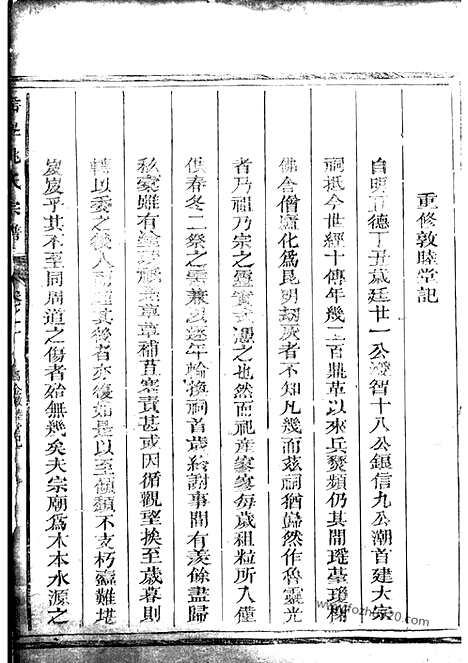 重修敦睦堂記
自明正德丁丑歲廷世一公智十八公鎮信九公潮首建大宗
祠祇今世經十傳年幾二百鼎革以來兵燹頻仍其間琁臺瓊榭
佛舍僧廬化為昆明刼灰者不知凡幾而茲祠猶巋然作魯靈光
者乃祖乃宗之靈實式憑之也然而祀產寥寥每歲租粒所入僅
供春冬二祭之需兼以逐年輪換祠首歲終謝事間有羨餘盡歸
私橐雖有塗茨祇亦草草補苴塞責甚或因循觀望挨至歲暮則
轉以委之後人而其後者亦復如是以至傾頹不支朽蠹難堪
岌岌乎其不至同周道之傷者殆無幾矣夫宗廟為木本水源之
氏宗譜
www.fozhu920.com